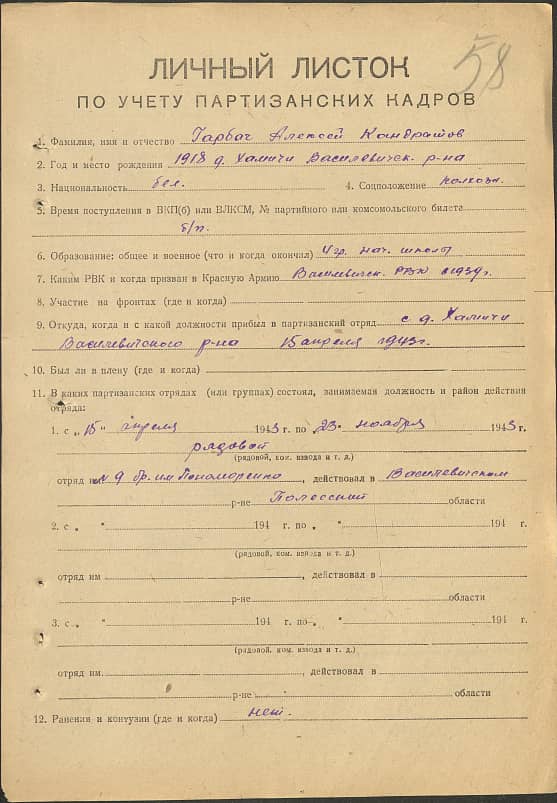 58
ЛИЧНЫЙ ЛИСТОК
ПО УЧЕТУ ПАРТИЗАНСКИХ КАДРОВ
1. Фамилия, имя и отчество Гарбач Алексей Кондратов
2. Год и место рождения 1918 д. Хамичи Василевичск. р-на
3. Национальность бел. 4. Соцположение колхозн.
5. Время поступления в ВКП(б) или ВЛКСМ, № партийного или комсомольского билета
б/п.
6. Образование: общее и военное (что и когда окончил) 4 гр. нач. школы
7. Каким РВК и когда призван в Красную Армию Василевичск. РВК 1939г.
8. Участие на фронтах (где и когда)
9. Откуда, когда и с какой должности прибыл в партизанский отряд с д. Хамичи
Василевичского р-на 15 апреля 1943г.
10. Был ли в плену (где и когда)
11. В каких партизанских отрядах (или группах) состоял, занимаемая должность и район действия
отряда:
1. с „ 15 " апреля 1943 г. по „ 23 " ноября 1943 г.
рядовой
(рядовой, ком. взвода и т. д.)
отряд им № 9 бр. им Пономоренко, действовал в Василевичском
р-не Полесский области
2. с „ " 194 г. по „ " 194 г.
(рядовой, ком. взвода и т. д.)
отряд им , действовал в
р-не области
3. с „ " 194 г. по „ " 194 г.
(рядовой, ком. взвода и т. д.)
отряд им. , действовал в
р-не области
12. Ранения и контузии (где и когда) нет.